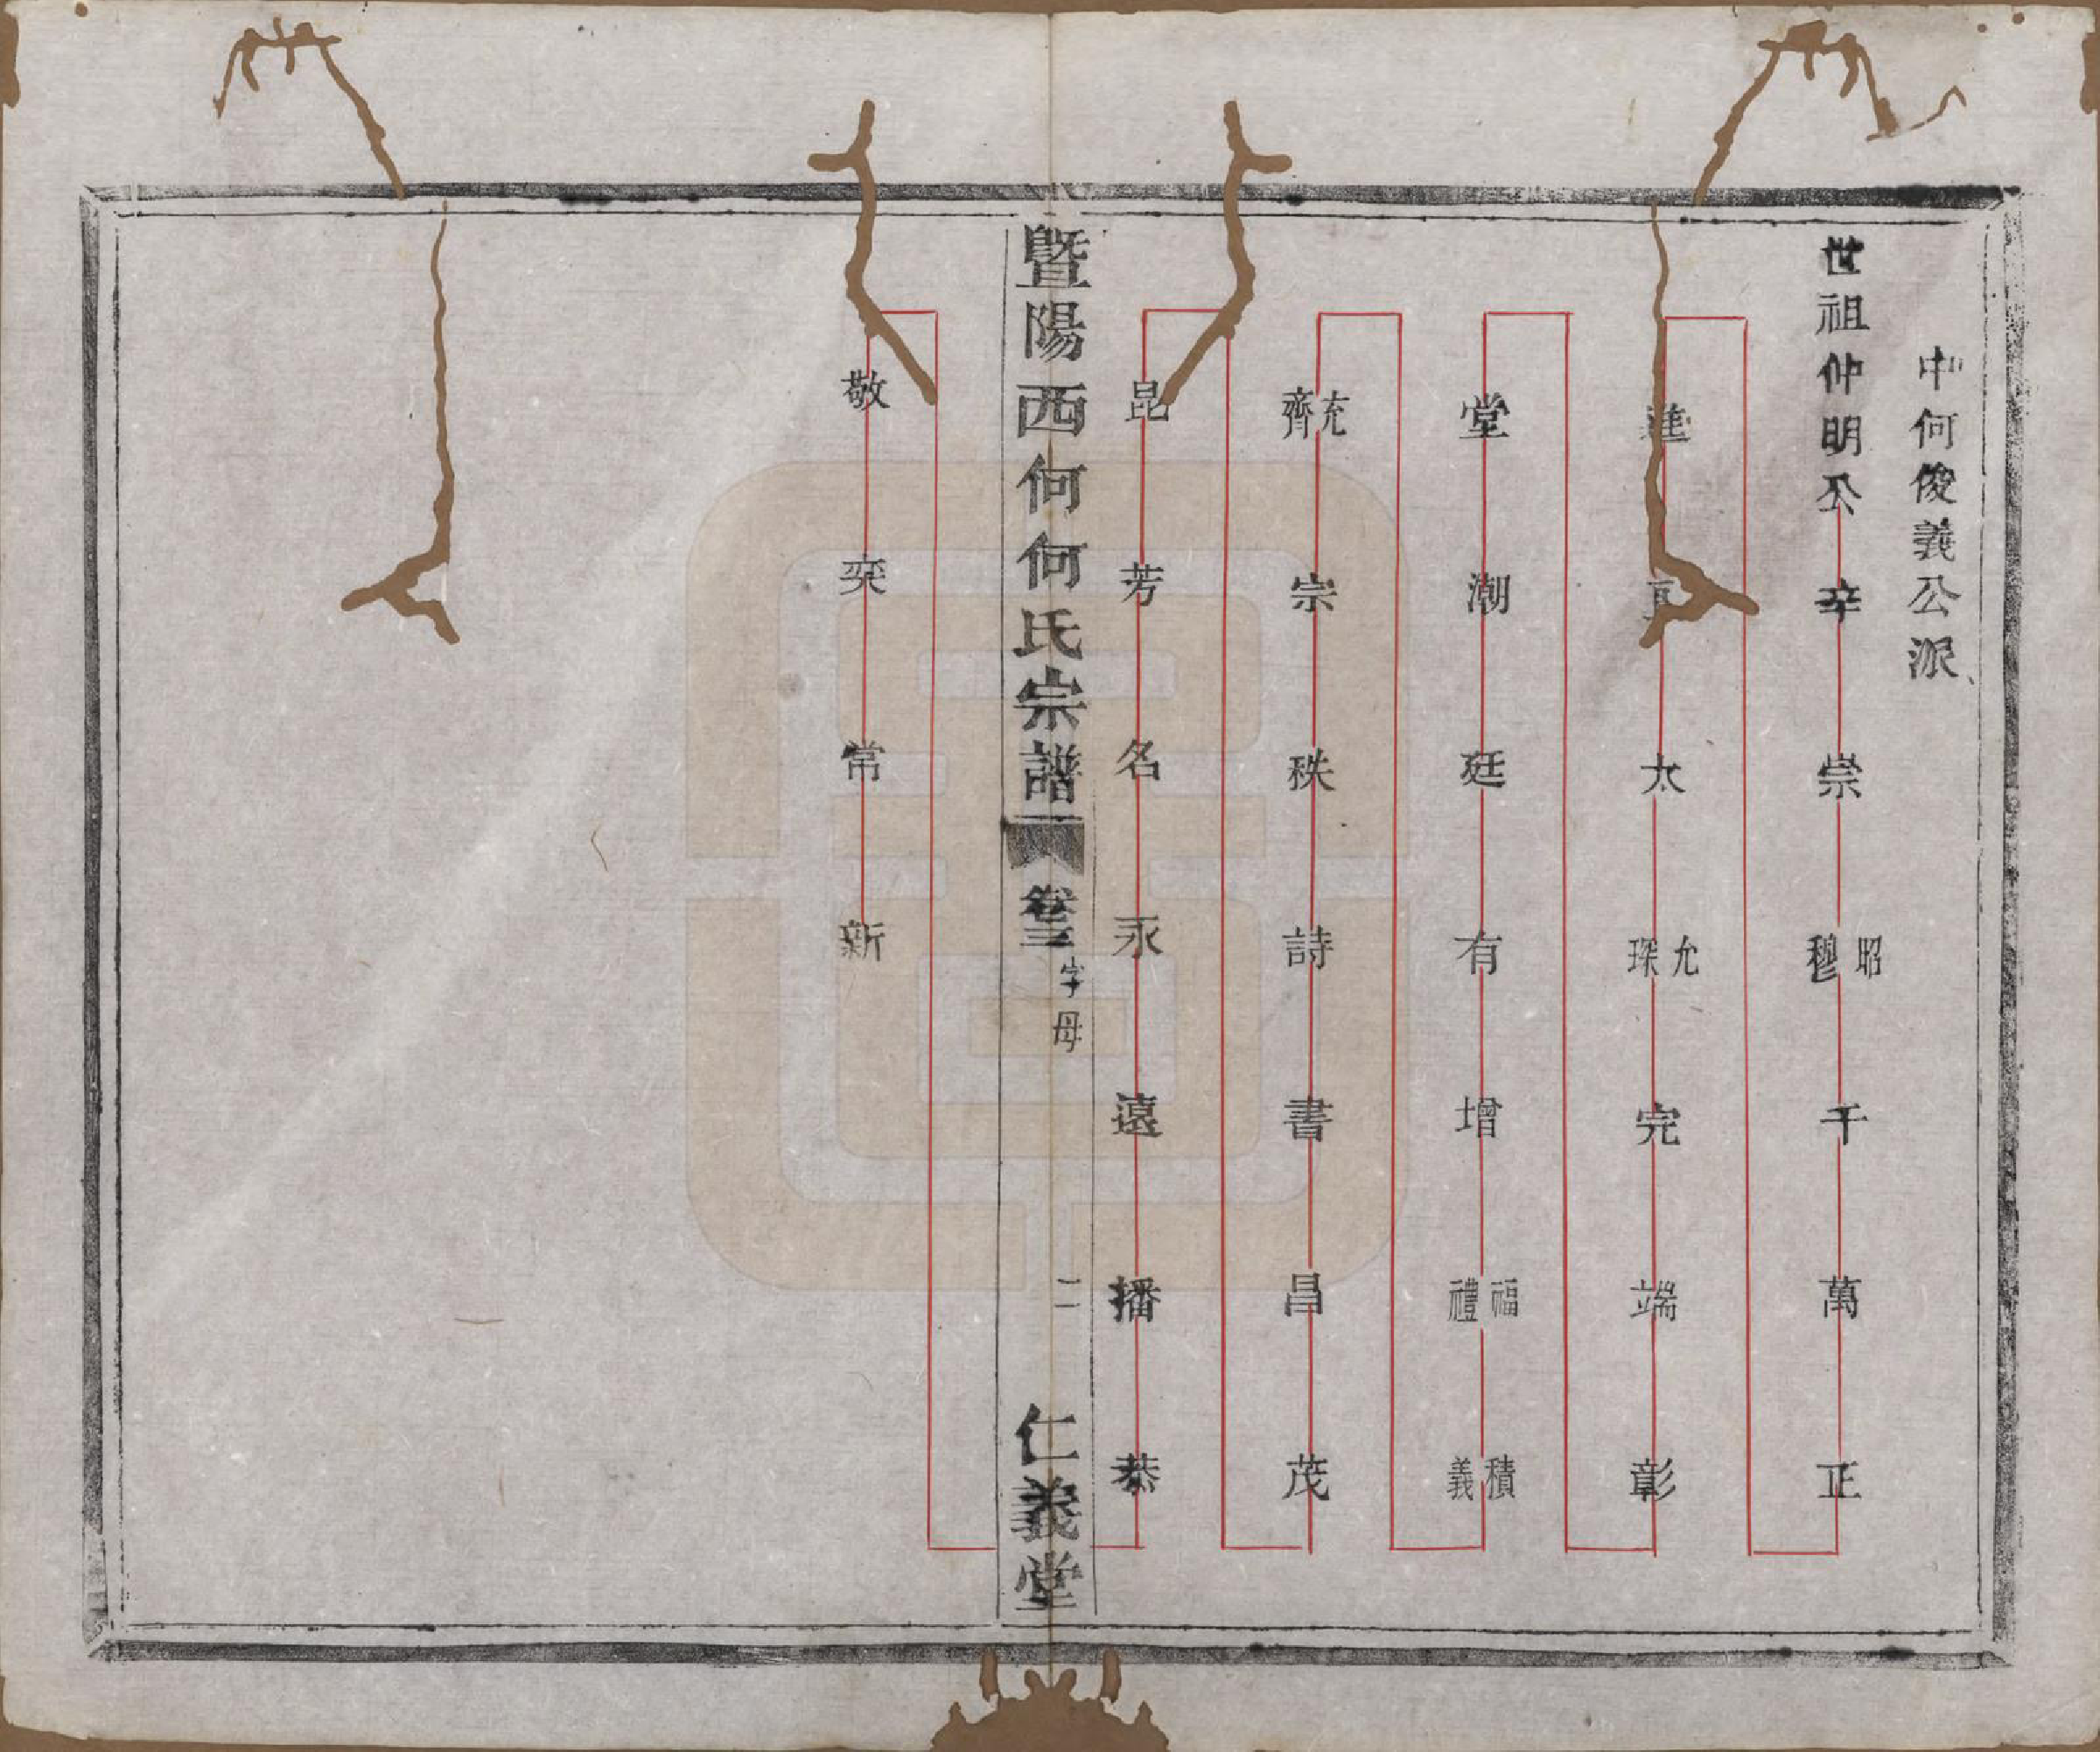 中何俊義公派
世祖仲明公 辛 崇 昭穆 千 萬 正
進 太 允琛 完 端 彰
堂 潮 廷 有 增 福禮 積義
充齊 宗 秩 詩 書 昌 茂
昆 芳 名 永 遠 播 恭
暨陽西何何氏宗譜 卷三 字母 二 仁義堂
敬 奕 常 新